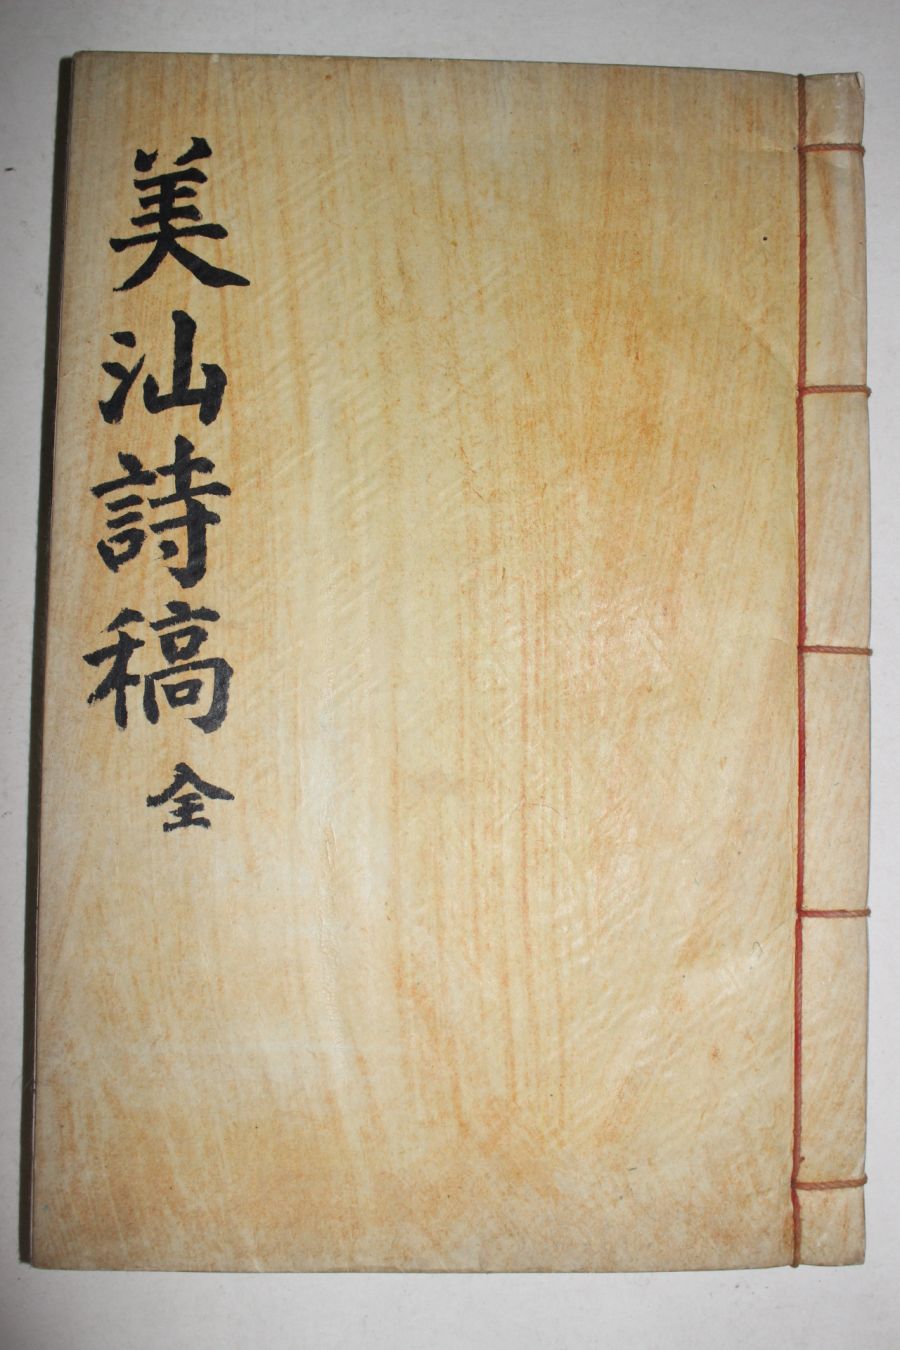 美汕詩稿 全